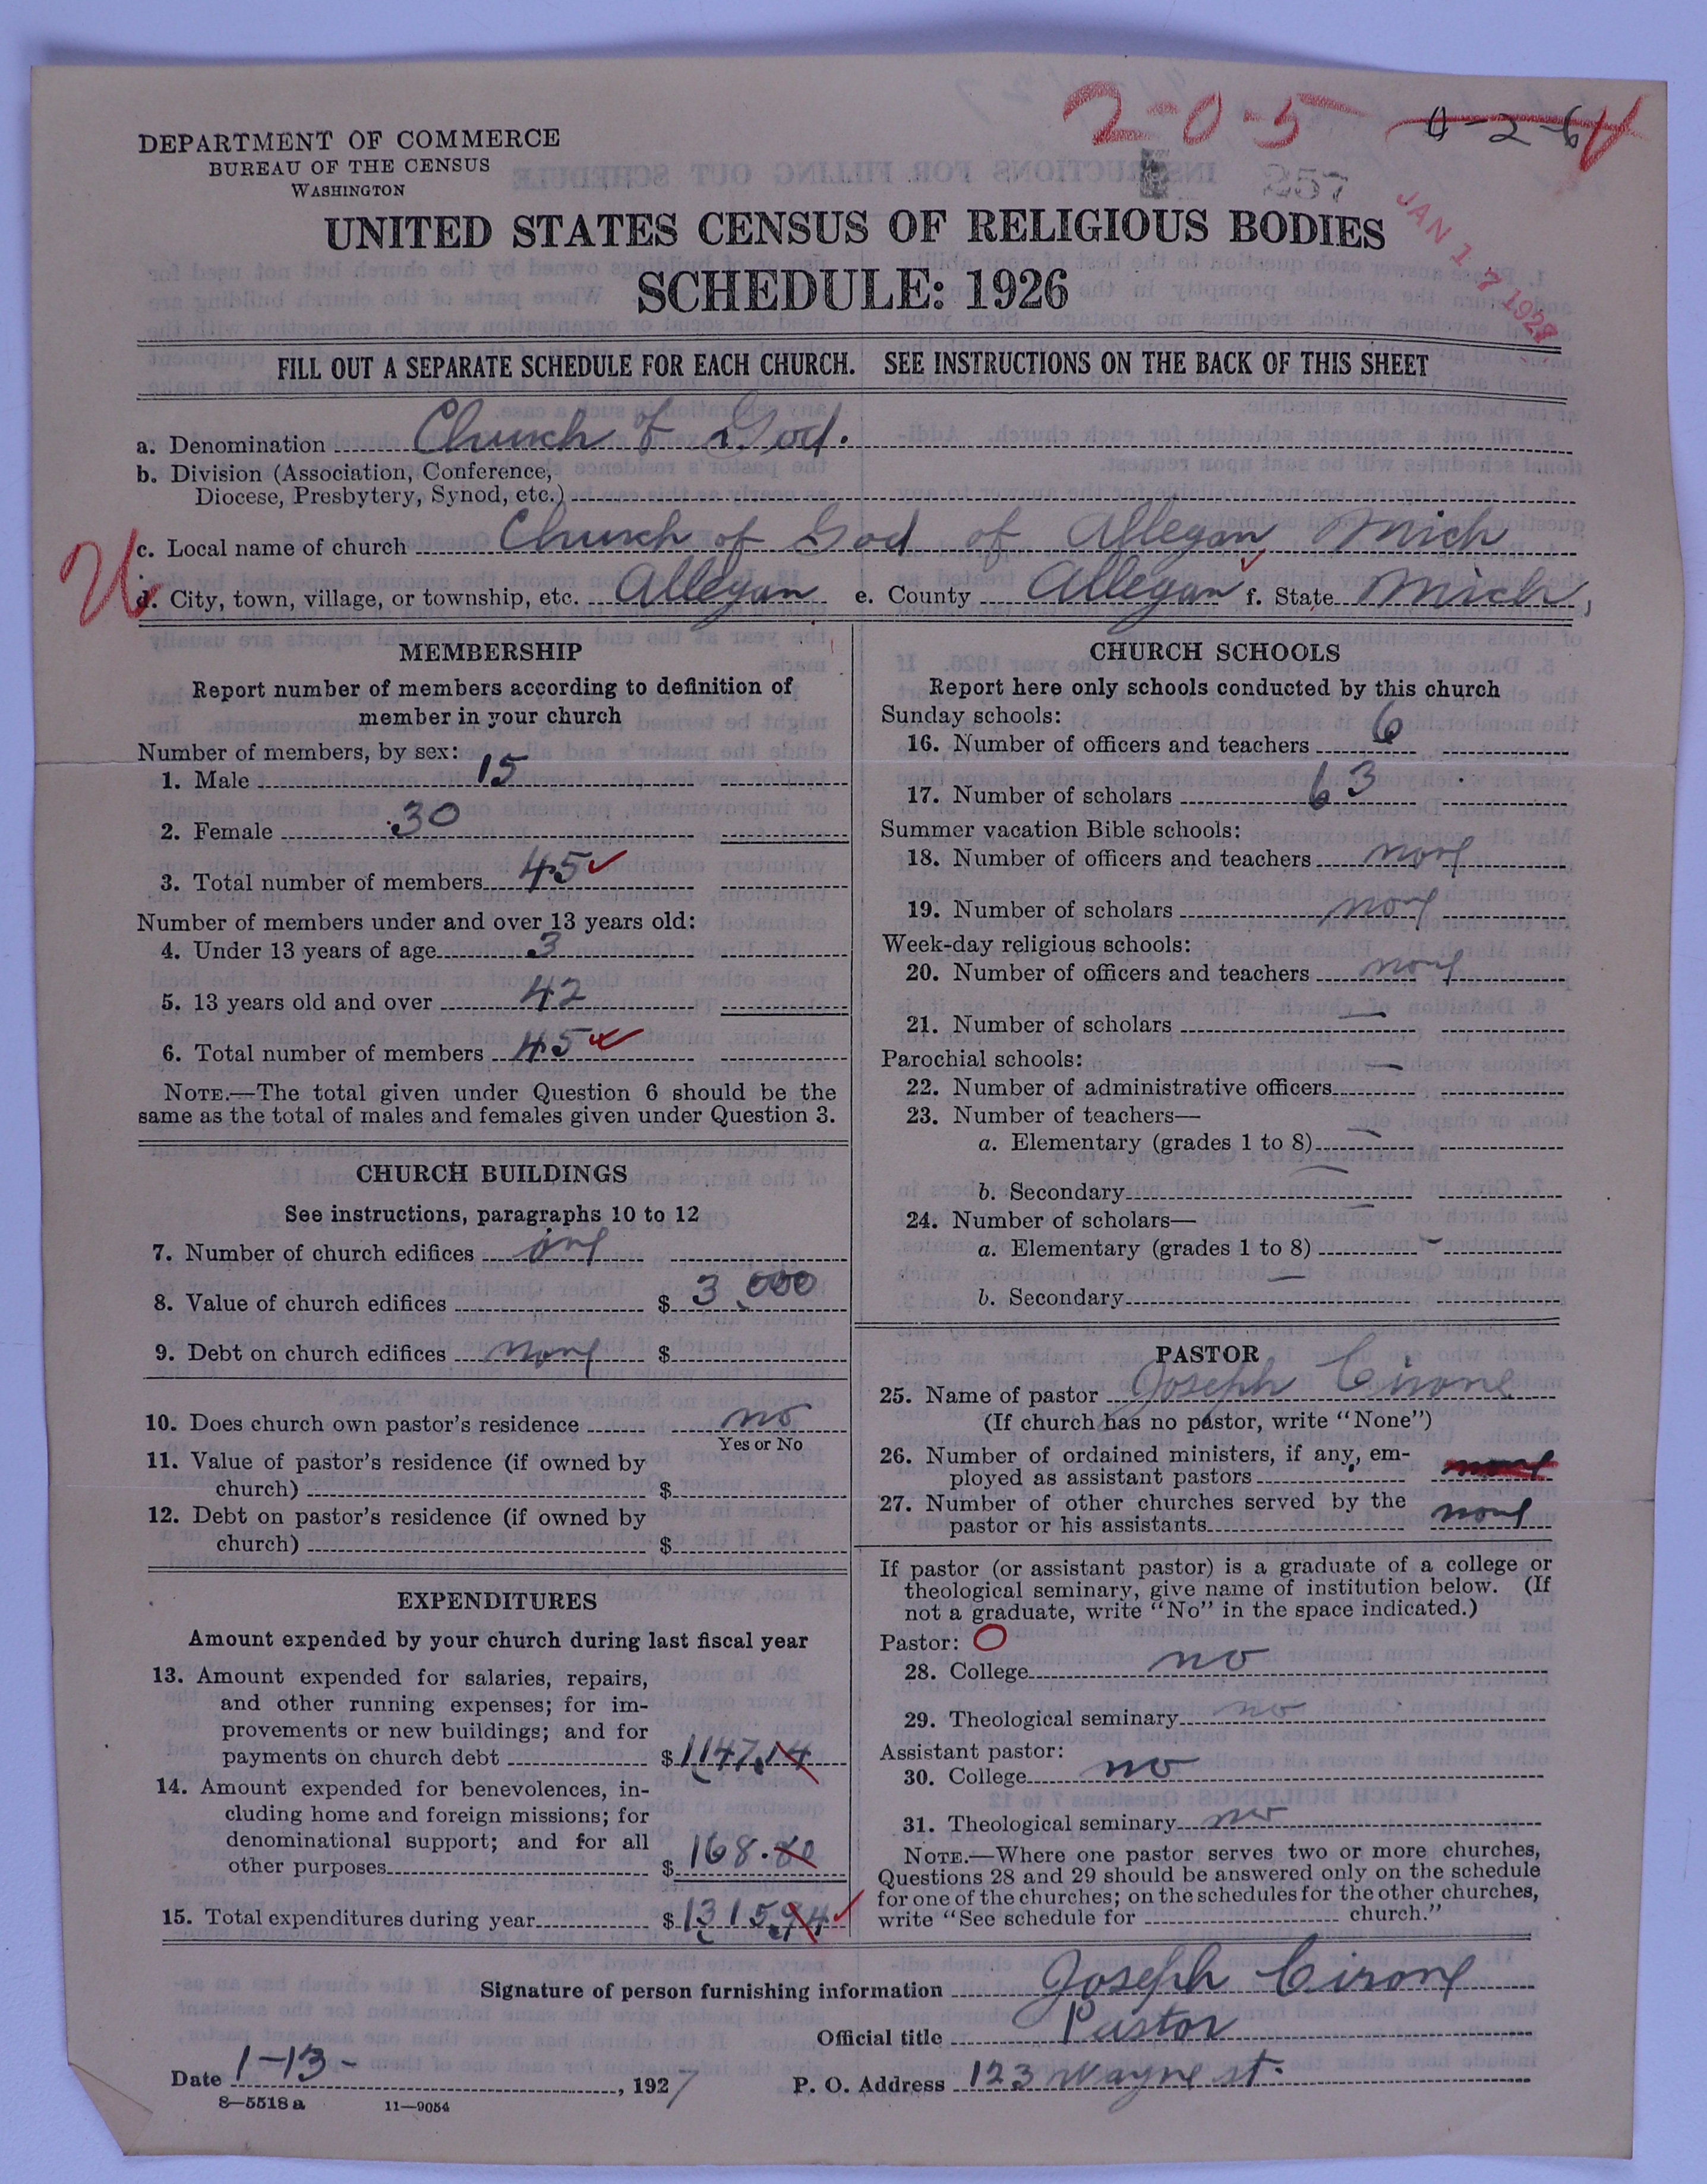 2-0-5 0-2-6
DEPARTMENT OF COMMERCE
BUREAU OF THE CENSUS
WASHINGTON
857
JAN 17 1927
UNITED STATES CENSUS OF RELIGIOUS BODIES
SCHEDULE: 1926
FILL OUT A SEPARATE SCHEDULE FOR EACH CHURCH. SEE INSTRUCTIONS ON THE BACK OF THIS SHEET
a. Denomination Church of God.
b. Division (Association, Conference,
Diocese, Presbytery, Synod, etc.)
c. Local name of church Church of God of Allegan Mich
d. City, town, village, or township, etc. Allegan e. County Allegan f. State Mich,
MEMBERSHIP
Report number of members according to definition of
member in your church
Number of members, by sex:
1. Male 15
2. Female 30
3. Total number of members 45
Number of members under and over 13 years old:
4. Under 13 years of age 3
5. 13 years old and over 42
6. Total number of members 45
NOTE.—The total given under Question 6 should be the
same as the total of males and females given under Question 3.
CHURCH BUILDINGS
See instructions, paragraphs 10 to 12
7. Number of church edifices one
8. Value of church edifices $ 3,000
9. Debt on church edifices none $
10. Does church own pastor's residence no
Yes or No
11. Value of pastor's residence (if owned by
church) $
12. Debt on pastor's residence (if owned by
church) $
EXPENDITURES
Amount expended by your church during last fiscal year
13. Amount expended for salaries, repairs,
and other running expenses; for im-
provements or new buildings; and for
payments on church debt $1147.14
14. Amount expended for benevolences, in-
cluding home and foreign missions; for
denominational support; and for all
other purposes $ 168.80
15. Total expenditures during year $1315.94
CHURCH SCHOOLS
Report here only schools conducted by this church
Sunday schools:
16. Number of officers and teachers 6
17. Number of scholars 63
Summer vacation Bible schools:
18. Number of officers and teachers none
19. Number of scholars none
Week-day religious schools:
20. Number of officers and teachers none
21. Number of scholars —
Parochial schools:
22. Number of administrative officers —
23. Number of teachers—
a. Elementary (grades 1 to 8) —
b. Secondary —
24. Number of scholars—
a. Elementary (grades 1 to 8) -
b. Secondary —
PASTOR
25. Name of pastor Joseph Cirone
(If church has no pastor, write "None")
26. Number of ordained ministers, if any, em-
ployed as assistant pastors none
27. Number of other churches served by the
pastor or his assistants none
If pastor (or assistant pastor) is a graduate of a college or
theological seminary, give name of institution below. (If
not a graduate, write "No" in the space indicated.)
Pastor: O
28. College no
29. Theological seminary no
Assistant pastor:
30. College no
31. Theological seminary no
NOTE.—Where one pastor serves two or more churches,
Questions 28 and 29 should be answered only on the schedule
for one of the churches; on the schedules for the other churches,
write "See schedule for church."
Signature of person furnishing information Joseph Cirone
Official title Pastor
Date 1-13-, 1927 P. O. Address 123 Wayne st.
8—5518 a 11—9054